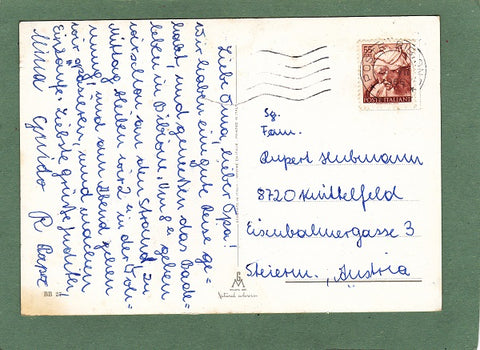 Liebe Oma, lieber Opa!
Wir haben eine gute Reise ge-
habt und genießen das Bade-
leben in Bibione. Um 8h gehen
wir schon an den Strand, zu
Mittag bleiben wir 2 h in der Woh-
nung, und am Abend gehen
wir spazieren, und machen
Einkäufe. Liebste Grüße
Mina Guido R
BB
55
POSTE ITALIANE
Fam.
Rupert Hubmann
8720 Knittelfeld
Eisenbahnergasse 3
Steierm., Austria